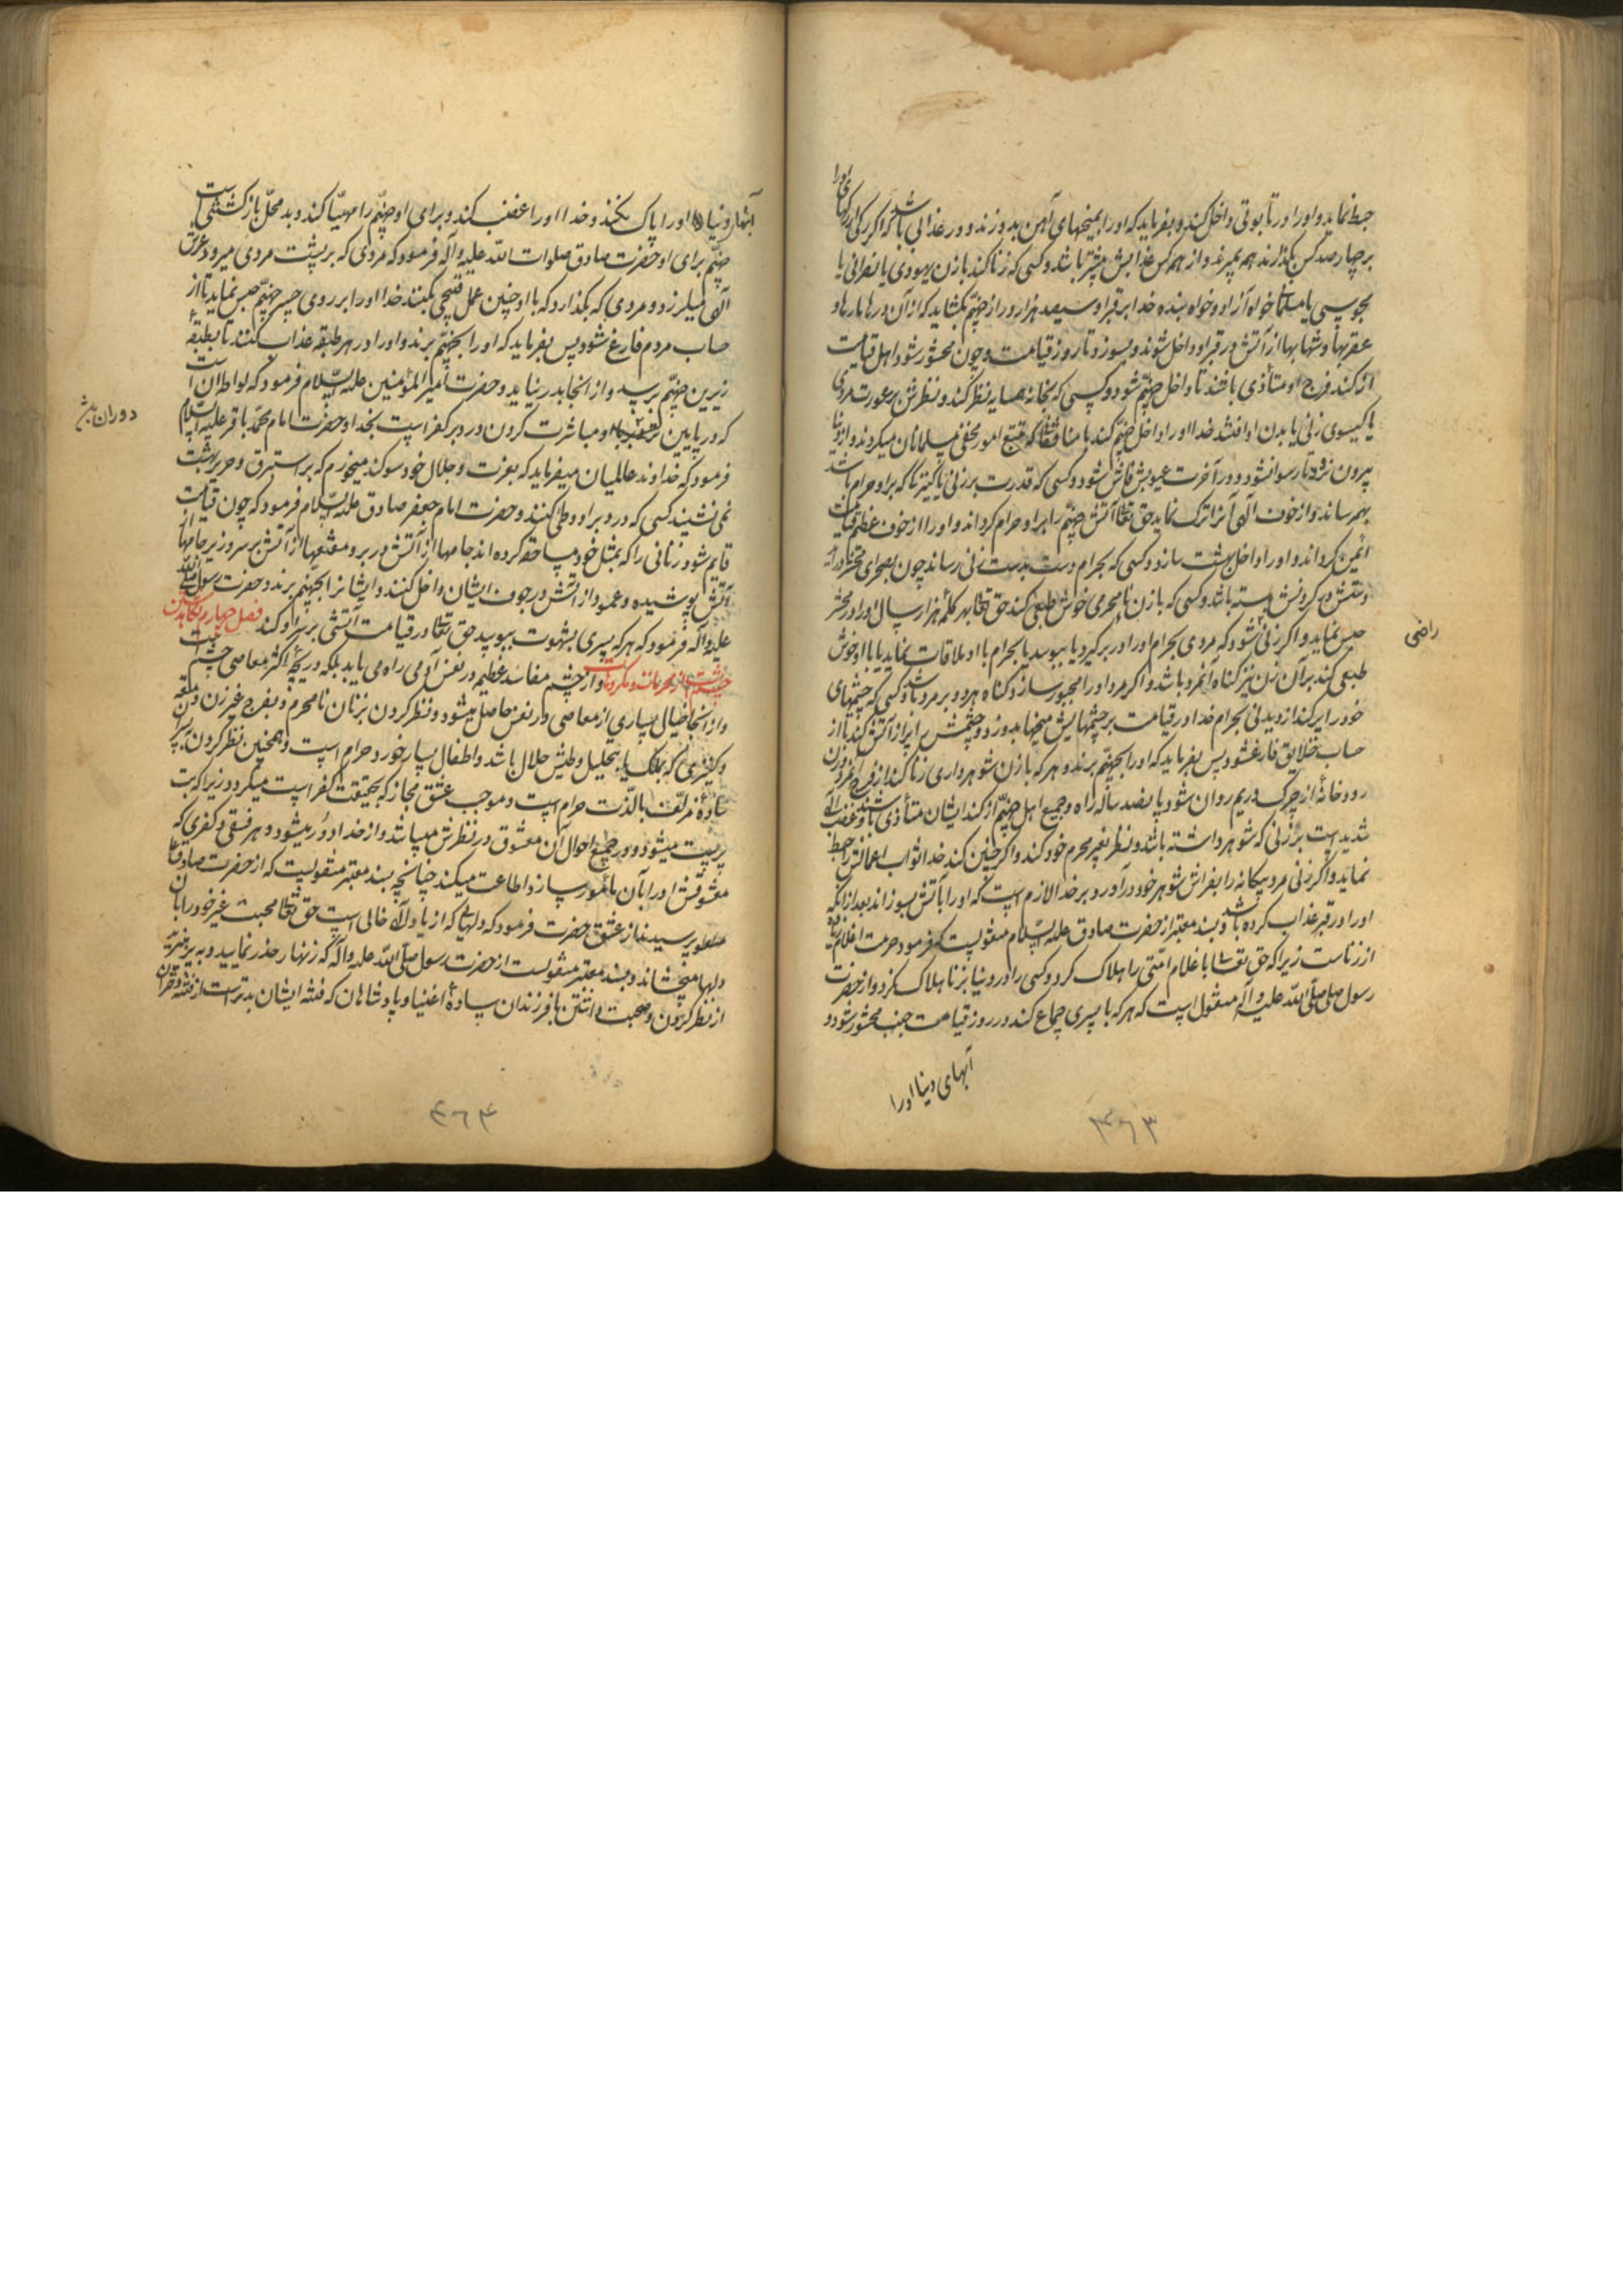 حبط نماید و او را در تابوتی داخل کند و بفرماید که او را بمیخهای آهن بدوزند و در عذابی باشد که اگر رکی از رکهای او را
بر چهار صد کس بگذارند همه بمیرند و از همه کس عذابش بیشتر باشد و کسی که زنا کند با زن یهودی یا نصرانی یا
مجوسی یا مسلمان خواه آزاد و خواه بنده خدا بر قبر او سیصد هزار در از جهنم بگشاید که از آن درها مارها و
عقربها و شهابها از آتش در قبر او داخل شوند و بسوزد تا روز قیامت و چون محشور شود اهل قیامت
از کند فرج او متأذی باشند تا داخل جهنم شود و کسی که بخانه همسایه نظر کند و نظرش بر عورت مردی
یا کیسوی زنی یا بدن او افتد خدا او را داخل جهنم کند با منافقان که تتبع امور مخفی مسلمانان میکردند و از دنیا
بیرون نرود تا رسوا نشود و در آخرت عیوبش فاش شود و کسی که قدرت بر زنی یا کنیزی که بر او حرام باشد
بهم رساند و از خوف الهی آنرا ترک نماید حق تعالی آتش جهنم را بر او حرام گرداند و او را از خوف عظیم قیامت
ایمن گرداند و او را داخل بهشت سازد و کسی که بحرام دست بدست زنی رساند چون بصحرای محشر در آید
دستش در گردنش بسته باشد و کسی که با زن نامحرمی خوش طبعی کند حق تعالی بهر کلمه هزار سال او را در محشر
حبس نماید و اگر زنی راضی شود که مردی بحرام او را در بر گیرد یا ببوسد یا بحرام با او ملاقات نماید یا با او خوش
طبعی کند بر آن زن نیز گناه آنمرد باشد و اگر مرد او را مجبور سازد گناه هر دو بر مرد باشد و کسی که چشمهای
خود را پر کند از دیدنی بحرام خدا در قیامت بر چشمهایش میخها بدوزد و چشمش را پر از آتش کند تا از
حساب خلایق فارغ شود پس بفرماید که او را بجهنم برند و هر که با زن شوهرداری زنا کند از فرج آن مرد و زن
رودخانه از چرک و ریم روان شود پانصد ساله راه و جمیع اهل جهنم از کند ایشان متأذی باشند و غضب الهی
شدید است بر زنی که شوهر داشته باشد و نظر بغیر محرم خود کند و اگر چنین کند خدا ثواب اعمالش را حبط
نماید و اگر زنی مرد بیگانه را بفراش شوهر خود در آورد بر خدا لازم است که او را بآتش بسوزاند بعد از آنکه
او را در قبر عذاب کرده باشد و بسند معتبر از حضرت صادق علیه السلام منقولست که فرمود حرمت اغلام زیاده
از زناست زیرا که حق تعالی با غلام امتی را هلاک کرد و کسی را در دنیا بزنا هلاک نکرد و از حضرت
رسول صلی الله علیه و آله منقول است که هر که با پسری جماع کند در روز قیامت جنب محشور شود و
آبهای دنیا او را
راضی
۳۶۳
آبهای دنیا او را پاک نکند و خدا او را غضب کند و برای او جهنم را مهیا کند و بد محل بازگشتی است
جهنم برای او حضرت صادق صلوات الله علیه و آله فرمود که مردی که بر پشت مردی میرود عرش
الهی میلرزد و مردی که بگذارد که با او چنین عمل قبیحی بکنند خدا او را بر روی جسر جهنم حبس نماید تا از
حساب مردم فارغ شود پس بفرماید که او را بجهنم برند و او را در هر طبقه عذاب کنند تا بطبقه
زیرین جهنم برسد و از آنجا بدر نیاید و حضرت امیر المؤمنین علیه السلام فرمود که لواط آن است
که در پایین تر از دبر او مباشرت کردن و در دبر کفر است بخدا و حضرت امام محمد باقر علیه السلام
فرمود که خداوند عالمیان میفرماید که بعزت و جلال خود سوگند میخورم که بر استبرق و حریر بهشت
نمی نشیند کسی که در دبر او وطی کنند و حضرت امام جعفر صادق علیه السلام فرمود که چون قیامت
قایم شود زنانی را که بمثل خود مساحقه کرده اند جامها از آتش در بر و مقنعها از آتش بر سر و زیر جامها از
آتش پوشیده و عمود از آتش در جوف ایشان داخل کنند و ایشانرا بجهنم برند و حضرت رسول صلی الله
علیه و آله فرمود که هر که پسری بشهوت ببوسد حق تعالی در قیامت آتشی بر سر او کند فصل چهارم نگاهداشتن
چشم است از محرمات و مکروهات و از چشم مفاسد عظیم در نفس آدمی راه می یابد بلکه دریچه اکثر معاصی چشم است
و از آنجا خیالی بسیاری از معاصی در نفس حاصل میشود و نظر کردن بزنان نامحرم و بفرج غیر زن و متعه
و کنیزی که بملک یا بتحلیل وطیش حلال باشد و اطفال بسیار خورد حرام است و همچنین نظر کردن به پسر
ساده زلف بالذت حرام است و موجب عشق مجاز که بحقیقت کفر است میگردد زیرا که بت
پرست میشود و در جمیع احوال آن معشوق در نظرش میباشد و از خدا دور میشود و هر فسقی و کفری که
معشوقش او را بآن مأمور سازد اطاعت میکند چنانچه بسند معتبر منقولست که از حضرت صادق
پرسیدند از عشق حضرت فرمود که دلهائی که از یاد اله خالی است حق تعالی محبت غیر خود را بآن
دلها میچشاند و بسند معتبر منقولست از حضرت رسول صلی الله علیه و آله که زنهار حذر نمایید و بپرهیزید
از نظر کردن و صحبت داشتن با فرزندان ساده اغنیا و پادشاهان که فتنه ایشان بدتر است از فتنه دختران
۳۶۴